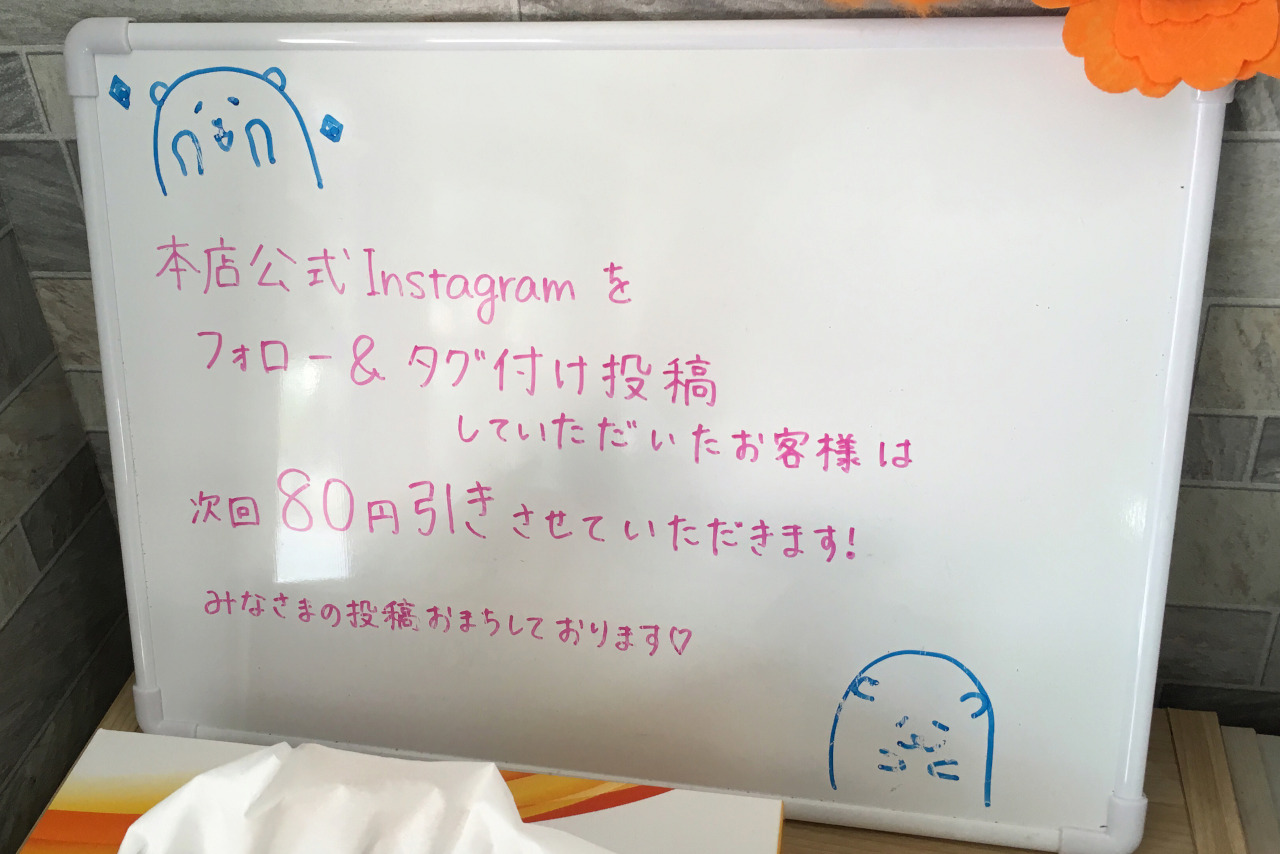 本店公式Instagramを
フォロー&タグ付け投稿
していただいたお客様は
次回80円引きさせていただきます!
みなさまの投稿おまちしております♡